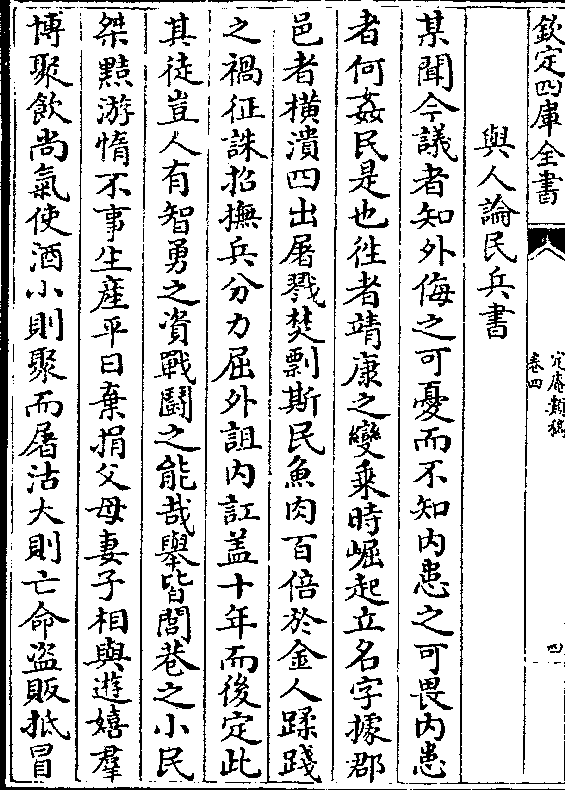 欽定四庫全書
定庵類稿
卷四
四
與人論民兵書
某聞今議者知外侮之可憂而不知内患之可畏内患
者何姦民是也徃者靖康之變乗時崛起立名字據郡
邑者橫潰四出屠戮焚剽斯民魚肉百倍於金人蹂踐
之禍征誅招撫兵分力屈外詛内訌葢十年而後定此
其徒豈人有智勇之資戰鬭之能哉舉皆閭巷之小民
桀黠游惰不事生産平日棄捐父母妻子相與遊嬉羣
博聚飲尚氣使酒小則聚而屠沽大則亡命盜販抵冒